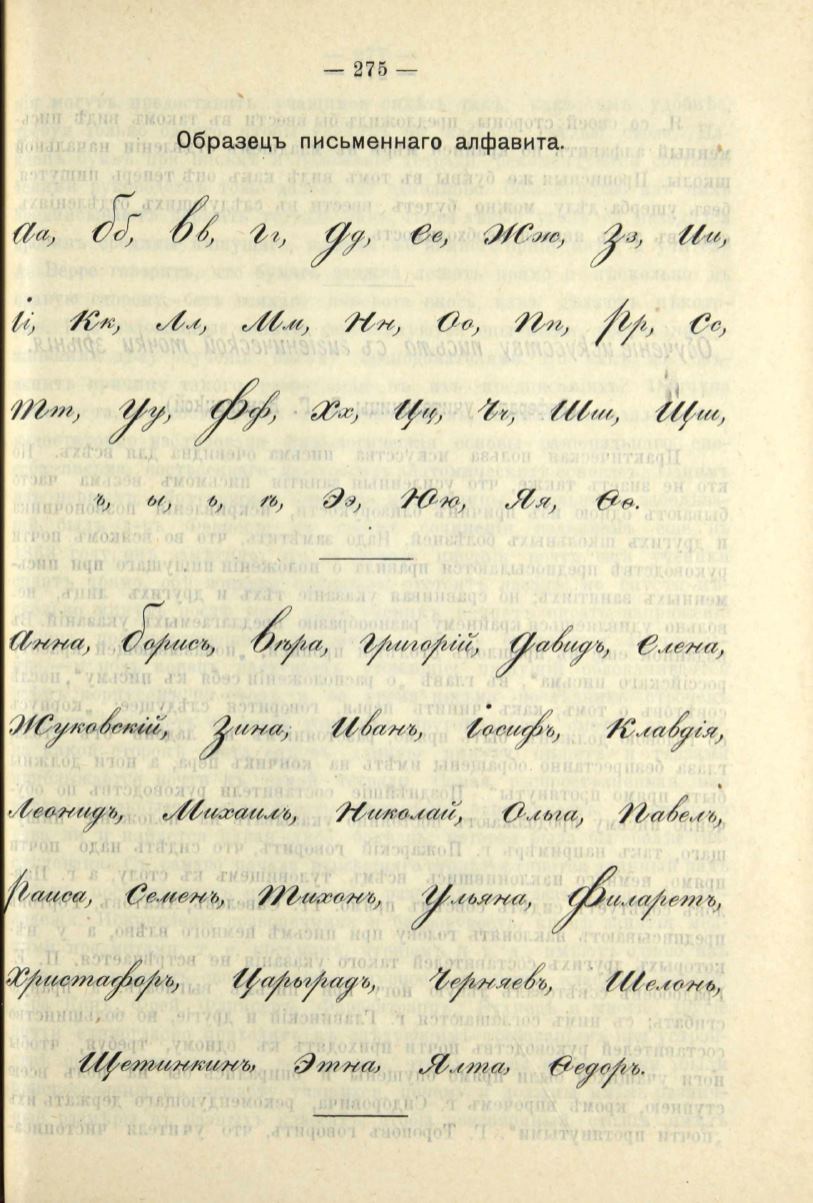 — 275 —
Образецъ письменнаго алфавита.
Аа, Бб, Вв, Гг, Дд, Ее, Жж, Зз, Ии,
Іі, Кк, Лл, Мм, Нн, Оо, Пп, Рр, Сс,
Тт, Уу, Фф, Хх, Цц, Чч, Шш, Щщ,
ъ, ы, ь, ѣ, Ээ, Юю, Яя, Ѳѳ.
Анна, Борисъ, Вѣра, Григорій, Давидъ, Елена,
Жуковскій, Зина, Иванъ, Іосифъ, Клавдія,
Леонидъ, Михаилъ, Николай, Ольга, Павелъ,
Раиса, Семенъ, Тихонъ, Ульяна, Филаретъ,
Христафоръ, Царьградъ, Черняевъ, Шелонь,
Щетинкинъ, Этна, Ялта, Ѳедоръ.